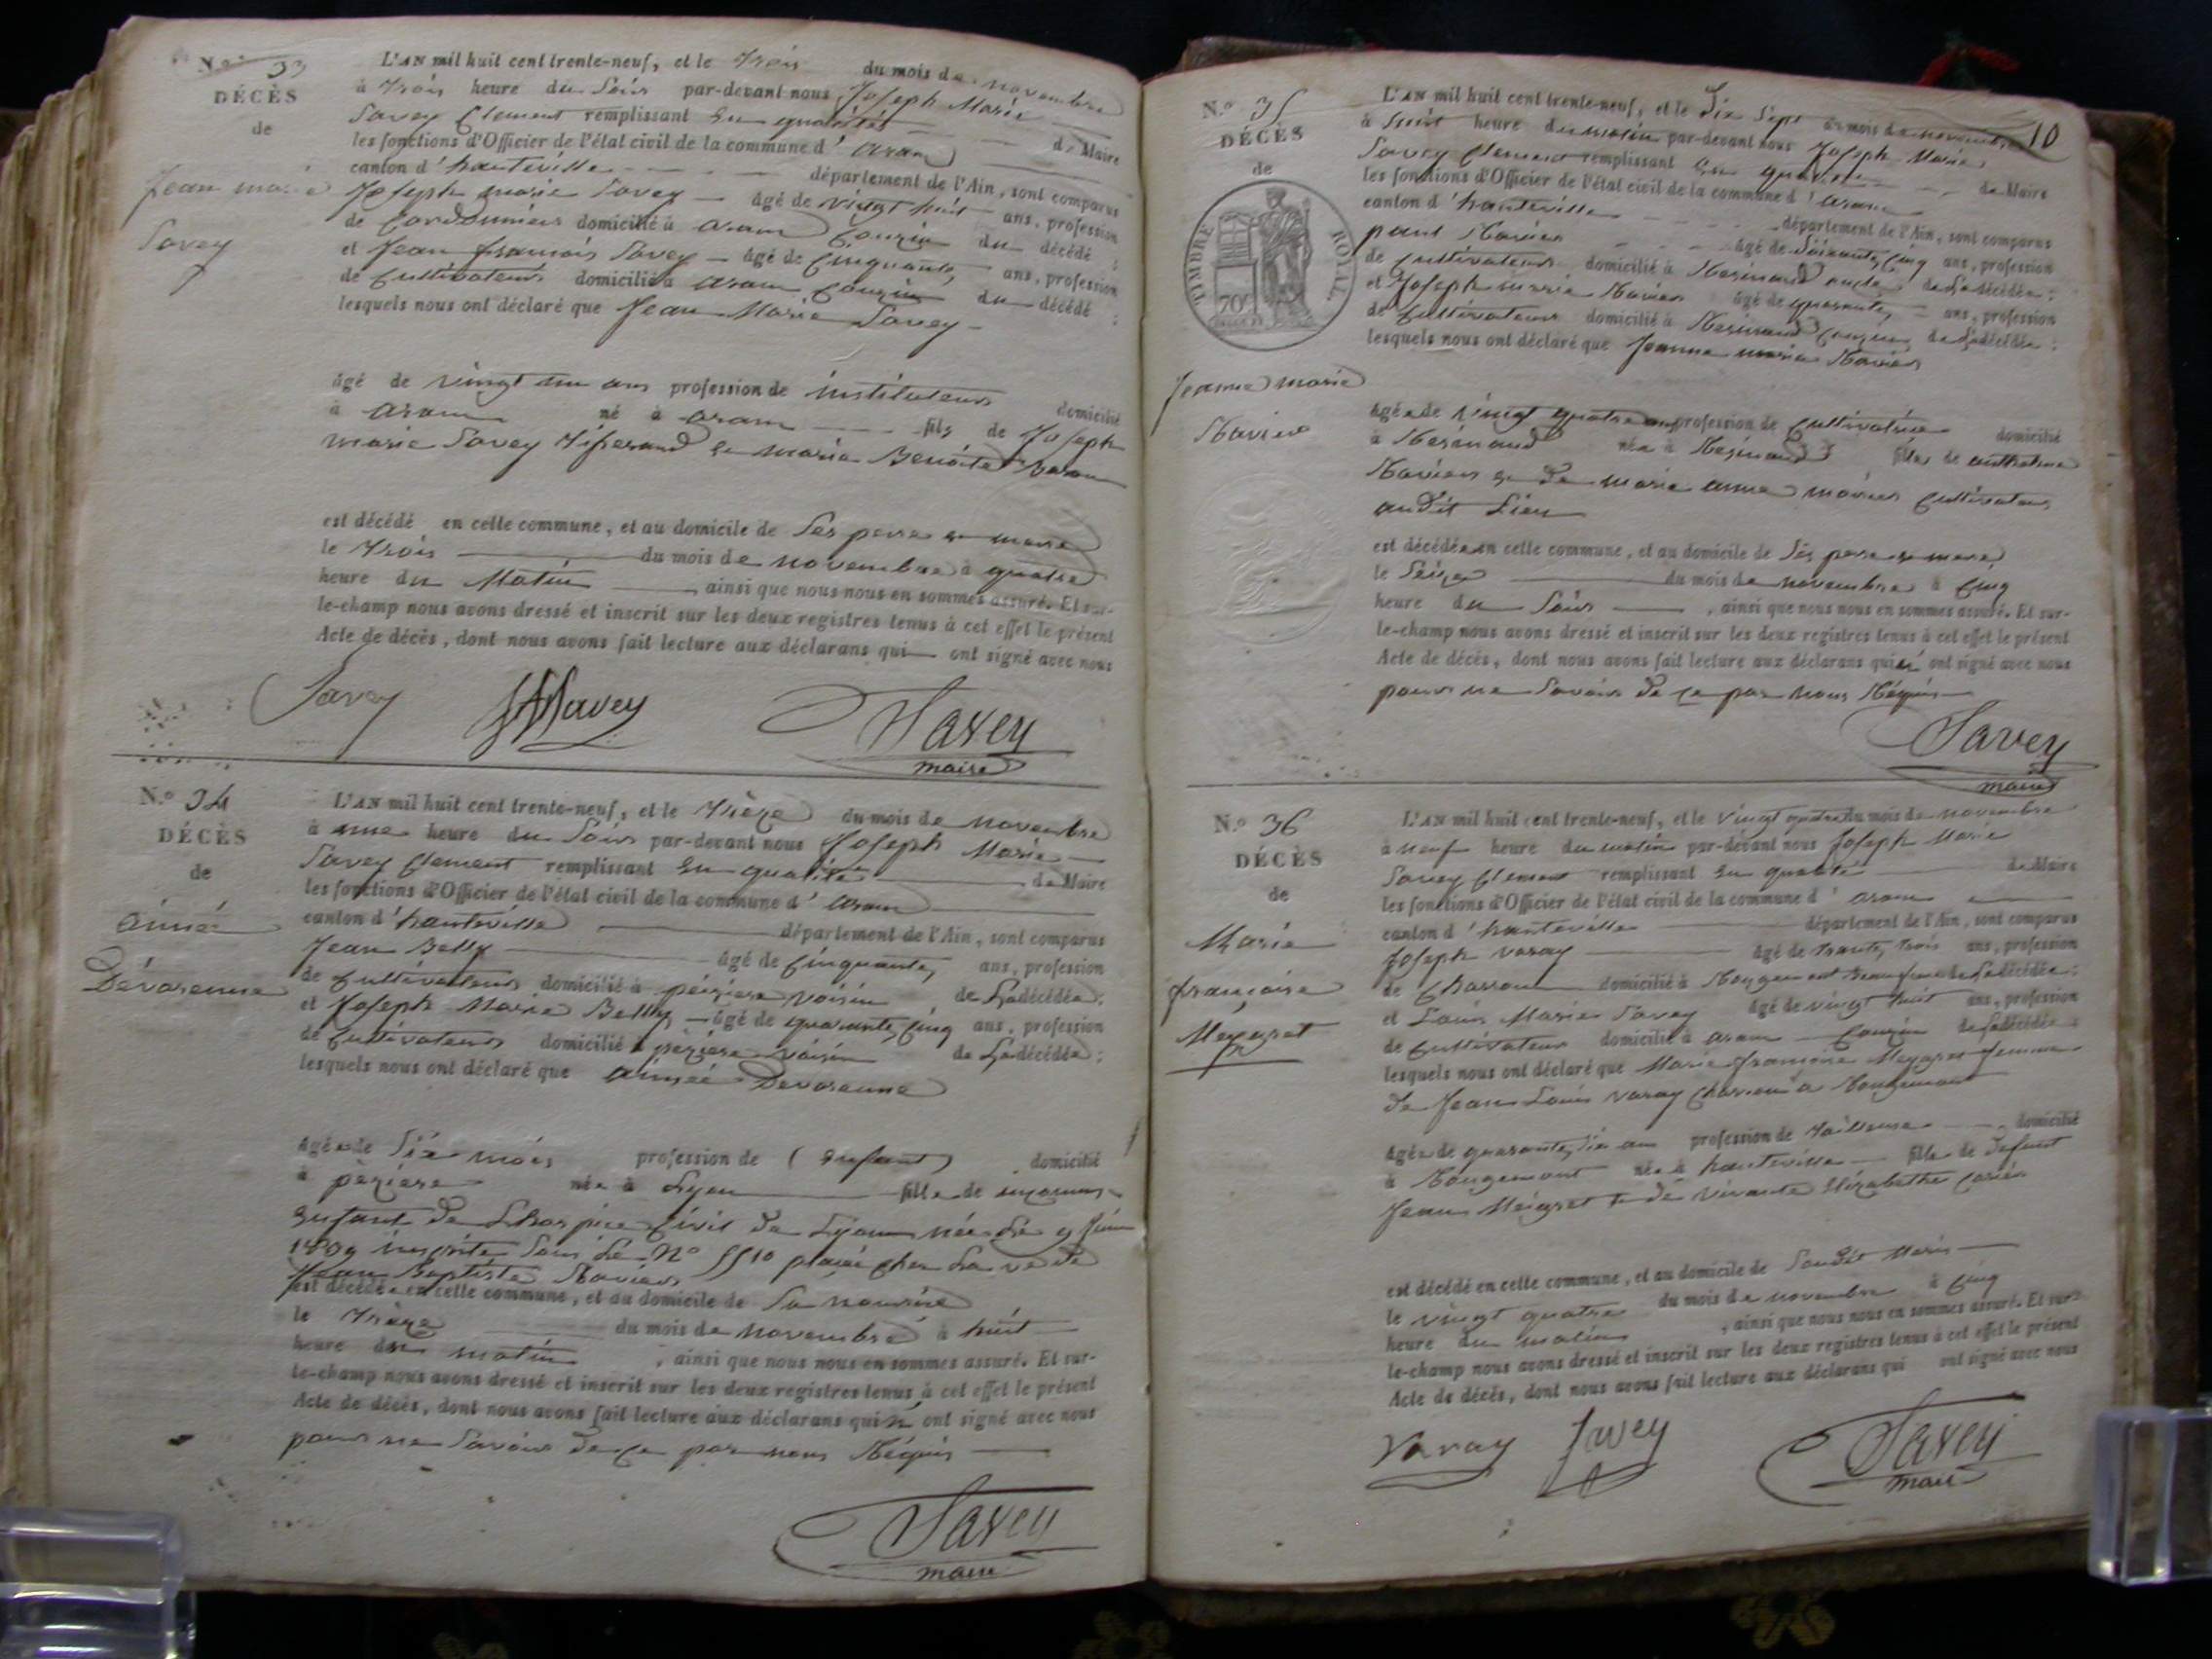 N.o 33
DÉCÈS
de
Jean marie
Savey
L'AN mil huit cent trente-neuf, et le trois du mois de novembre
à trois heure du Soir par-devant nous Joseph Marie
Savey Clement remplissant En qualité de Maire
les fonctions d'Officier de l'état civil de la commune d' aran
canton d'hauteville département de l'Ain, sont comparus
Joseph marie Savey âgé de vingt huit ans, profession
de Cordonniers domicilié à aran Couzin du décédé ;
et Jean francois Savey âgé de Cinquante, ans, profession
de Cultivateurs domicilié à aran Couzin du décédé ;
lesquels nous ont déclaré que Jean Marie Savey
âgé de vingt un ans profession de instituteurs domicilié
à aran né à aran fils de Joseph
marie Savey tisserand & marie Benoite
est décédé en cette commune, et au domicile de Ses pere & mere
le trois du mois de novembre à quatre
heure du Matin , ainsi que nous nous en sommes assuré. Et sur-
le-champ nous avons dressé et inscrit sur les deux registres tenus à cet effet le présent
Acte de décès, dont nous avons fait lecture aux déclarans qui ont signé avec nous
Savey Savey Savey
maire
N.o 34
DÉCÈS
de
aimée
Dévarenne
L'AN mil huit cent trente-neuf, et le trèze du mois de novembre
à une heure du Soir par-devant nous Joseph Marie
Savey Clement remplissant En qualité de Maire
les fonctions d'Officier de l'état civil de la commune d' aran
canton d'hauteville département de l'Ain, sont comparus
Jean Belly âgé de Cinquante, ans, profession
de Cultivateurs domicilié à pèziere voisin de Ladécédée ;
et Joseph Marie Belly âgé de quarante, Cinq ans, profession
de Cultivateurs domicilié à pèziere voisin de Ladécédée ;
lesquels nous ont déclaré que aimée Devarenne
âgée de Six mois profession de ( Enfant ) domicilié
à pèziere née à Lyon fille de inconnus
Enfant de Lhospice Civil de Lyon née Le 9 Juin
1839 inscrite Sous Le N° 5510 placée chez La ve de
Jean Baptiste
est décédée en cette commune, et au domicile de Sa nourice
le trèze du mois de novembre à huit
heure du matin , ainsi que nous nous en sommes assuré. Et sur-
le-champ nous avons dressé et inscrit sur les deux registres tenus à cet effet le présent
Acte de décès, dont nous avons fait lecture aux déclarans qui n' ont signé avec nous
pour ne Savoir de Ce par nous Réquis
Savey
maire
10
N.o 35
DÉCÈS
de
TIMBRE ROYAL
70c
Jeanne marie
L'AN mil huit cent trente-neuf, et le Dix Sept du mois de novembre
à huit heure du matin par-devant nous Joseph Marie
Savey Clement remplissant En qualité de Maire
les fonctions d'Officier de l'état civil de la commune d' aran
canton d'hauteville département de l'Ain, sont comparus
paul âgé de Soixante, Cinq ans, profession
de Cultivateurs domicilié à Resinand oncle de Ladécédée ;
et Joseph marie âgé de quarante, ans, profession
de Cultivateurs domicilié à Resinand Couzin de Ladécédée ;
lesquels nous ont déclaré que Jeanne marie
âgée de vingt quatre ans profession de Cultivatrice domicilié
à Resinand née à Resinand fille de anthelme
& de marie anne Cultivateurs
audit Lieu
est décédée en cette commune, et au domicile de Ses pere & mere
le Seize du mois de novembre à Cinq
heure du Soir , ainsi que nous nous en sommes assuré. Et sur-
le-champ nous avons dressé et inscrit sur les deux registres tenus à cet effet le présent
Acte de décès, dont nous avons fait lecture aux déclarans qui n' ont signé avec nous
pour ne Savoir de Ce par nous Réquis
Savey
maire
N.o 36
DÉCÈS
de
Marie
françoise
Meygret
L'AN mil huit cent trente-neuf, et le vingt quatre du mois de novembre
à neuf heure du matin par-devant nous Joseph Marie
Savey Clement remplissant En qualité de Maire
les fonctions d'Officier de l'état civil de la commune d' aran
canton d'hauteville département de l'Ain, sont comparus
Joseph varay âgé de trente, trois ans, profession
de Charron domicilié à Rougemont beau frere de Ladécédée ;
et Louis Marie Savey âgé de vingt huit ans, profession
de Cultivateur domicilié à aran Couzin de Ladécédée ;
lesquels nous ont déclaré que Marie françoise Meygret femme
de Jean Louis varay Charron a Rougemont
âgée de quarante, Six ans profession de tailleuse domicilié
à Rougemont née à hauteville fille de Defunt
Jean Meigret & de vivante Elizabethe
est décédé en cette commune, et au domicile de Sondit Maris
le vingt quatre du mois de novembre à Cinq
heure du matin , ainsi que nous nous en sommes assuré. Et sur-
le-champ nous avons dressé et inscrit sur les deux registres tenus à cet effet le présent
Acte de décès, dont nous avons fait lecture aux déclarans qui ont signé avec nous
Varay Savey Savey
maire